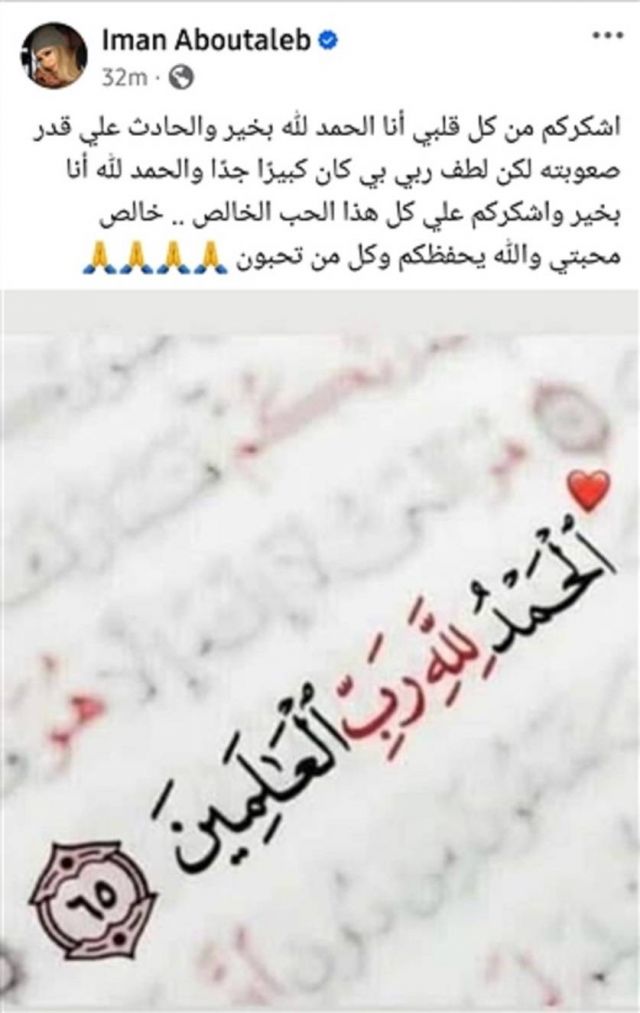 Iman Aboutaleb
32m ·
اشكركم من كل قلبي أنا الحمد لله بخير والحادث علي قدر
صعوبته لكن لطف ربي بي كان كبيرًا جدًا والحمد لله أنا
بخير واشكركم علي كل هذا الحب الخالص .. خالص
محبتي والله يحفظكم وكل من تحبون 🙏🙏🙏🙏
ٱلْحَمْدُ لِلَّهِ رَبِّ ٱلْعَـٰلَمِينَ
٦٥